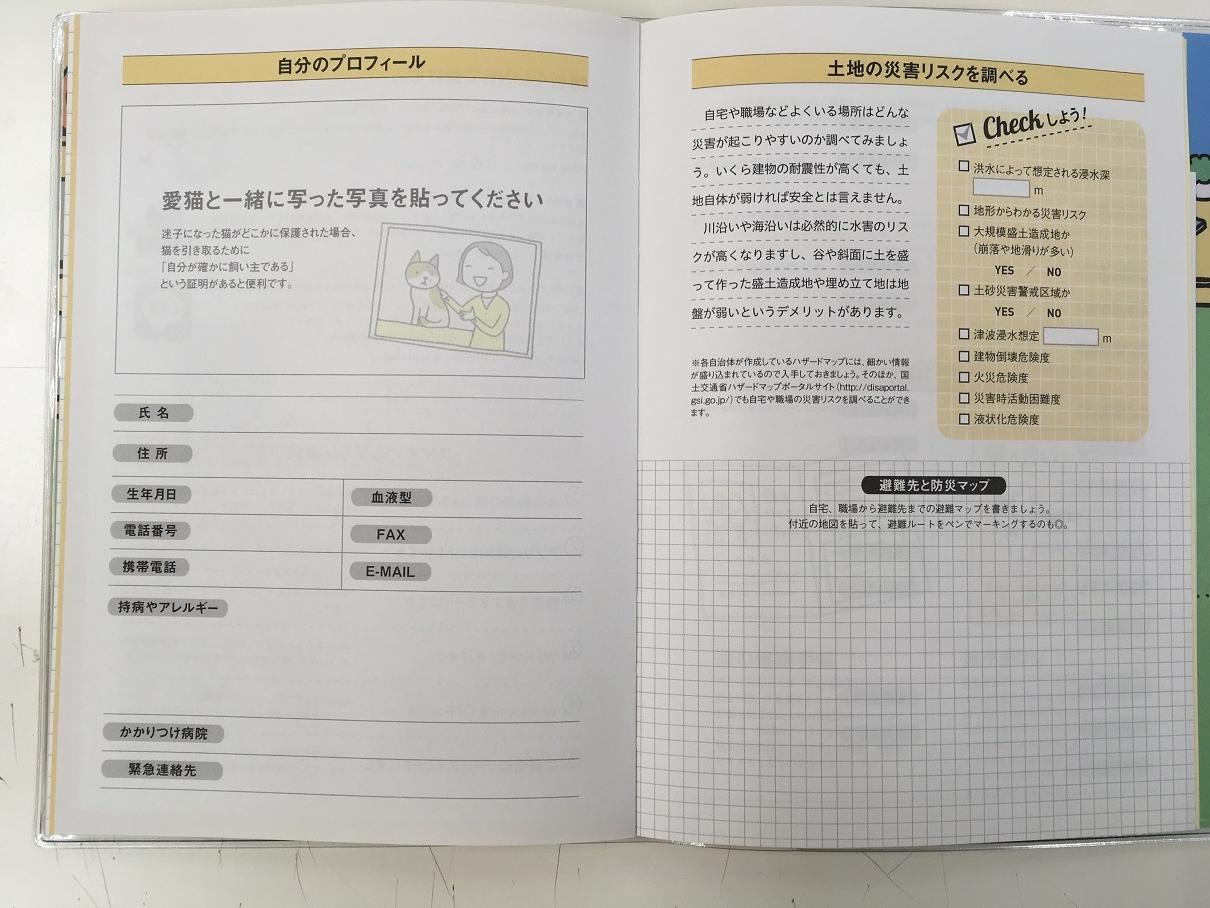 自分のプロフィール
愛猫と一緒に写った写真を貼ってください
迷子になった猫がどこかに保護された場合、
猫を引き取るために
「自分が確かに飼い主である」
という証明があると便利です。
氏 名
住 所
生年月日
血液型
電話番号
FAX
携帯電話
E-MAIL
持病やアレルギー
かかりつけ病院
緊急連絡先
土地の災害リスクを調べる
自宅や職場などよくいる場所はどんな
災害が起こりやすいのか調べてみましょ
う。いくら建物の耐震性が高くても、土
地自体が弱ければ安全とは言えません。
川沿いや海沿いは必然的に水害のリス
クが高くなりますし、谷や斜面に土を盛
って作った盛土造成地や埋め立て地は地
盤が弱いというデメリットがあります。
※各自治体が作成しているハザードマップには、細かい情報
が盛り込まれているので入手しておきましょう。そのほか、国
土交通省ハザードマップポータルサイト(http://disaportal.
gsi.go.jp/)でも自宅や職場の災害リスクを調べることができ
ます。
Checkしよう!
洪水によって想定される浸水深
m
地形からわかる災害リスク
大規模盛土造成地か
(崩落や地滑りが多い)
YES / NO
土砂災害警戒区域か
YES / NO
津波浸水想定 m
建物倒壊危険度
火災危険度
災害時活動困難度
液状化危険度
避難先と防災マップ
自宅、職場から避難先までの避難マップを書きましょう。
付近の地図を貼って、避難ルートをペンでマーキングするのも◎。